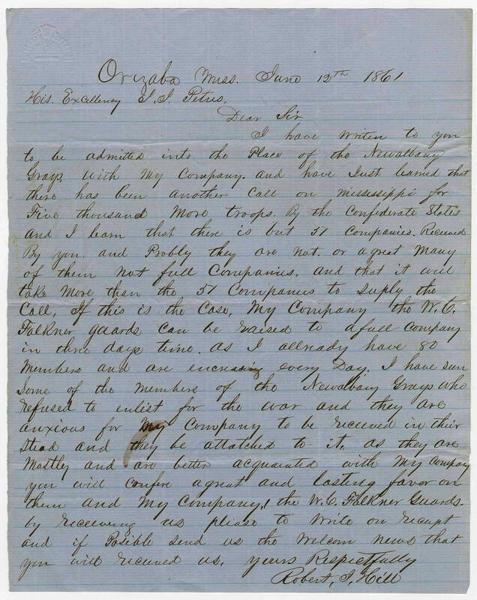 Orizaba Miss. June 12th 1861
His. Excellency J. J. Pettus.
Dear Sir
I have writen to you
to be admitted into the Place of the Newalbany
Grays with My Company. and have Just learned that
there has been another call on mississippi for
Five thousand More troops. By the Confederate States
and I learn that there is but 57 Companies. Received
By you and Probly they are not. or agreat Many
of them Not full Companies. and that it will
take More than the 57 Companies to suply the
Call, If this is the Case, My Company the W. C.
Falkner guards can be raised to afull company
in three days time. as I allready have 80
Members and are encreasing every Day. I have seen
Some of the members of the Newalbany Grays who
refused to enlist for the war and they are
anxious for my Company to be received in their
Stead and they be attatched to it. as they are
Mostley and are better acquainted with My Company
you will confire agreat and lasting favor on
them and My Company, the W. C. Falkner Guards.
by receeving us please to Write on receipt
and if Posible send us the Welcom news that
you will received us. yours Respectfully
Robert. J. Hill